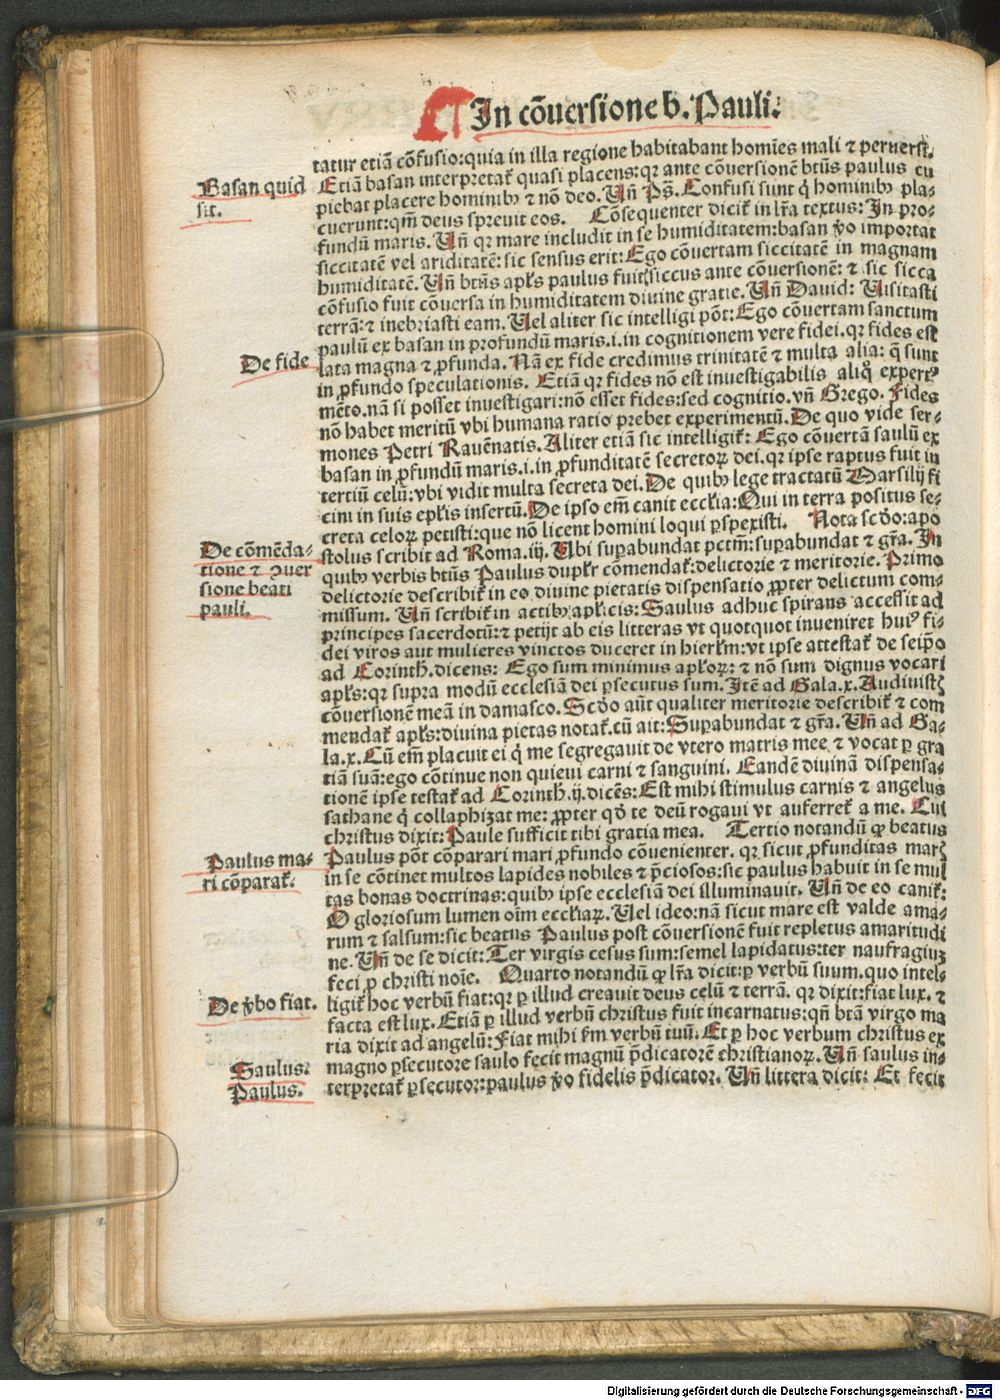 ¶ In cõuersione b. Pauli.
tatur etiã cõfusio: quia in illa regione habitabant homĩes mali ⁊ peruersi.
Basan quid
sit.
Etiã basan interpretat̃ quasi placens: qr ante cõuersionẽ btũs paulus cu
piebat placere hominibꝰ ⁊ nõ deo. Uñ Ps̃. Confusi sunt q̇ hominibꝰ pla-
cuerunt: qm̃ deus spreuit eos. Cõsequenter dicit̃ in lr̃a textus: In pro-
fundũ maris. Uñ qr mare includit in se humiditatem: basan ṽo importat
siccitatẽ vel ariditatẽ: sic sensus erit: Ego cõuertam siccitatẽ in magnam
humiditatẽ. Uñ btũs apl̃s paulus fuit siccus ante cõuersionẽ: ⁊ sic sicca
cõfusio fuit cõuersa in humiditatem diuine gratie. Uñ Dauid: Uisitasti
terrã: ⁊ inebriasti eam. Uel aliter sic intelligi põt: Ego cõuertam sanctum
paulũ ex basan in profundũ maris .i. in cognitionem vere fidei. qr fides est
De fide
lata magna ⁊ ꝓfunda. Nã ex fide credimus trinitatẽ ⁊ multa alia: q̃ sunt
in ꝓfundo speculationis. Etiã qr fides nõ est inuestigabilis aliq̃ experi-
mẽto. nã si posset inuestigari: nõ esset fides: sed cognitio. vñ Grego. Fides
nõ habet meritũ vbi humana ratio prebet experimentũ. De quo vide ser-
mones Petri Rauẽnatis. Aliter etiã sic intelligit̃: Ego cõuertã saulũ ex
basan in ꝓfundũ maris .i. in ꝓfunditatẽ secretoꝝ dei. qr ipse raptus fuit in
tertiũ celũ: vbi vidit multa secreta dei. De quibꝰ lege tractatũ Marsilij fi
cini in suis epl̃is insertũ. De ipso em̃ canit eccl̃ia: Qui in terra positus se-
creta celoꝝ petisti: que nõ licent homini loqui ꝑspexisti. Nota scḋo: apo
De cõmẽda-
tione ⁊ ꝯuer
sione beati
pauli.
stolus scribit ad Roma. iij. Ubi suꝑabundat pctm̃: suꝑabundat ⁊ gr̃a. In
quibꝰ verbis btũs Paulus dupl̃r cõmendat̃: delictorie ⁊ meritorie. Primo
delictorie describit̃ in eo diuine pietatis dispensatio ꝓpter delictum com-
missum. Uñ scribit̃ in actibꝰ apl̃icis: Saulus adhuc spirans accessit ad
principes sacerdotũ: ⁊ petijt ab eis litteras vt quotquot inueniret huiꝰ fi-
dei viros aut mulieres vinctos duceret in hierl̃m: vt ipse attestat̃ de seip̃o
ad Corinth. dicens: Ego sum minimus apl̃oꝝ: ⁊ nõ sum dignus vocari
apl̃s: qr supra modũ ecclesiã dei ꝑsecutus sum. Itẽ ad Gala. x. Audiuistꝭ
cõuersionẽ meã in damasco. Scḋo aũt qualiter meritorie describit̃ ⁊ com
mendat̃ apl̃s: diuina pietas notat̃. cũ ait: Suꝑabundat ⁊ gr̃a. Uñ ad Ga-
la. x. Cũ em̃ placuit ei q̇ me segregauit de vtero matris mee, ⁊ vocat ꝑ gra
tiã suã: ego cõtinue non quieui carni ⁊ sanguini. Eandẽ diuinã dispensa-
tionẽ ipse testat̃ ad Corinth. ij. dicẽs: Est mihi stimulus carnis ⁊ angelus
sathane q̇ collaphizat me: ꝓpter qḋ te deũ rogaui vt auferret̃ a me. Cui
christus dixit: Paule sufficit tibi gratia mea. Tertio notandũ ꝙ beatus
Paulus ma-
ri cõparat̃.
Paulus põt cõparari mari ꝓfundo cõuenienter. qr sicut ꝓfunditas marꝭ
in se cõtinet multos lapides nobiles ⁊ p̃ciosos: sic paulus habuit in se mul
tas bonas doctrinas: quibꝰ ipse ecclesiã dei illuminauit. Uñ de eo canit̃:
O gloriosum lumen oĩm eccl̃iaꝝ. Uel ideo: nã sicut mare est valde ama-
rum ⁊ salsum: sic beatus Paulus post cõuersionẽ fuit repletus amaritudi
ne. Uñ de se dicit: Ter virgis cesus sum: semel lapidatus: ter naufragiuꝫ
feci ꝓ christi noĩe. Quarto notandũ ꝙ lr̃a dicit: ꝑ verbũ suum. quo intel-
De ṽbo fiat.
ligit̃ hoc verbũ fiat: qr ꝑ illud creauit deus celũ ⁊ terrã. qr dixit: fiat lux. ⁊
facta est lux. Etiã ꝑ illud verbũ christus fuit incarnatus: qñ btã virgo ma
ria dixit ad angelũ: Fiat mihi ẽm verbũ tuũ. Et ꝑ hoc verbum christus ex
Saulus:
Paulus.
magno ꝑsecutore saulo fecit magnũ p̃dicatorẽ christianoꝝ. Uñ saulus in-
terpretat̃ ꝑsecutor: paulus ṽo fidelis p̃dicator. Uñ littera dicit: Et fecit
Digitalisierung gefördert durch die Deutsche Forschungsgemeinschaft - DFG